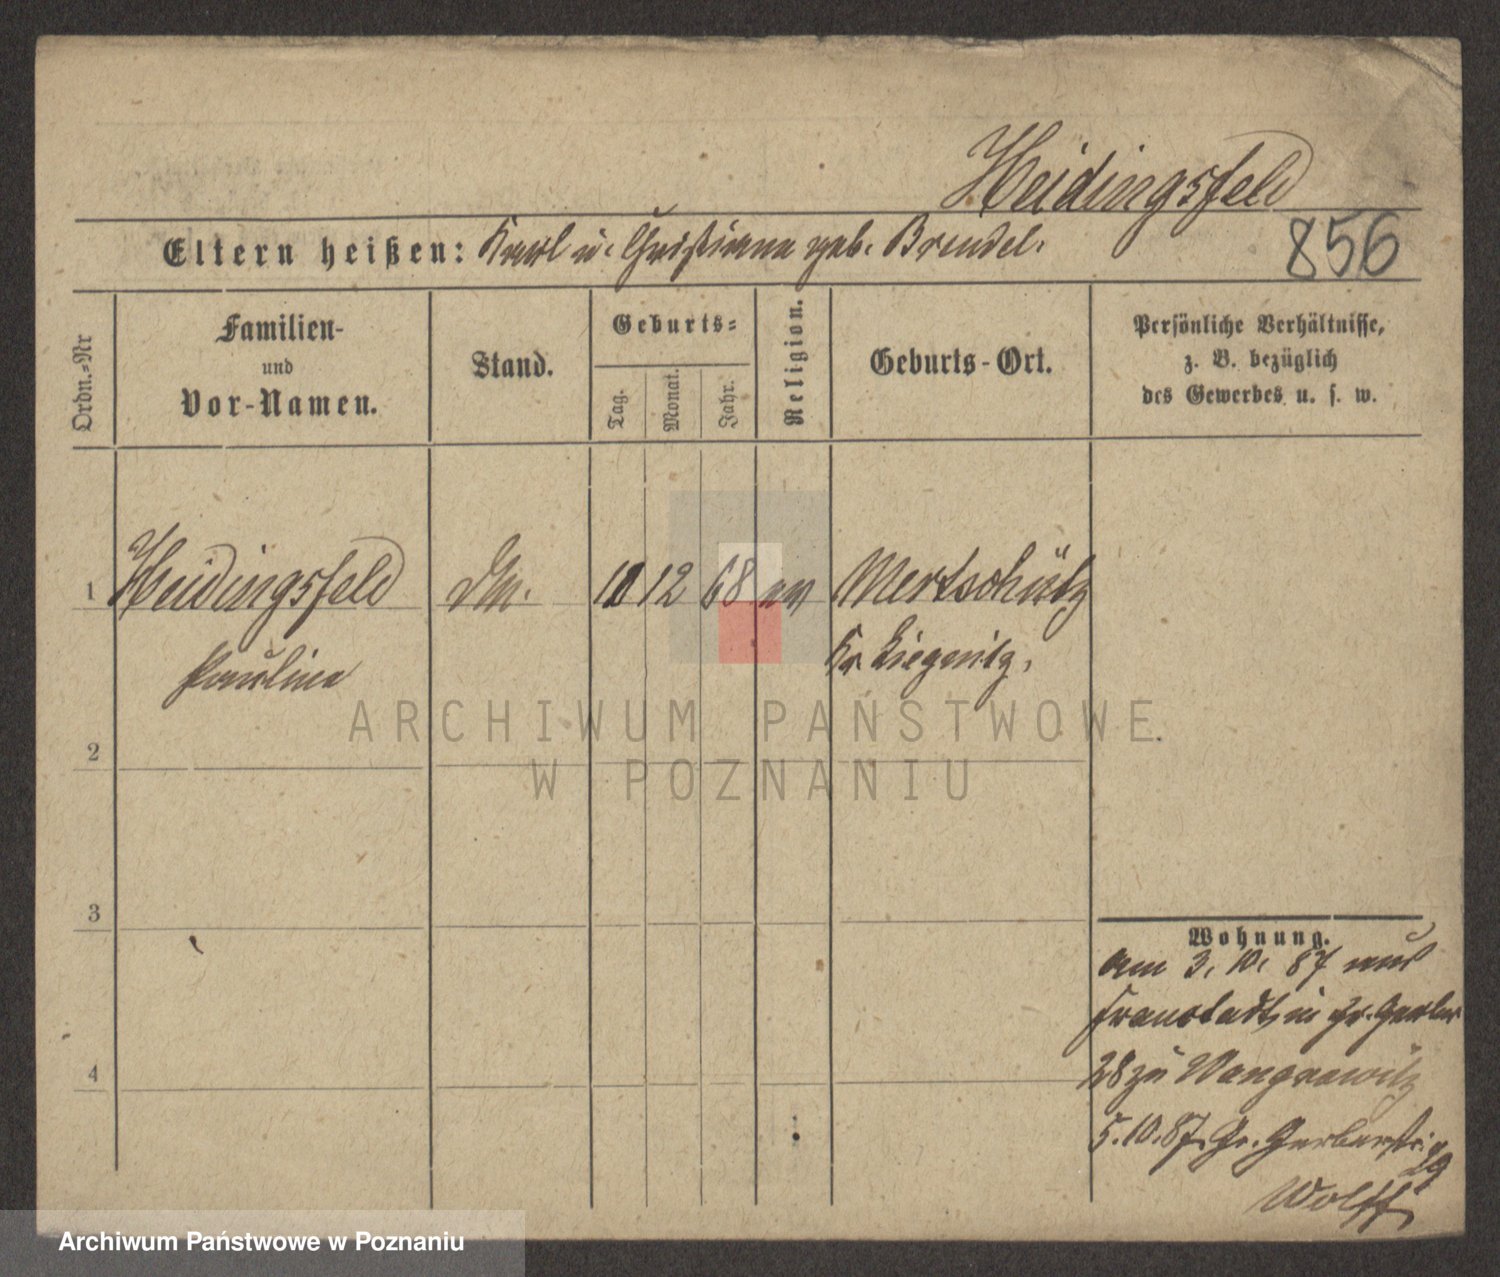 Heidingsfeld
856
Eltern heißen: Karl u. Christiana geb. Brendel.
Ordn.-Nr
Familien-
und
Vor-Namen.
Stand.
Geburts-
Tag.
Monat.
Jahr.
Religion.
Geburts-Ort.
Persönliche Verhältnisse,
z. B. bezüglich
des Gewerbes u. s. w.
1 Heidingsfeld 12 68 ev Mertschütz
Pauline Kr. Liegnitz.
2
3
4
Wohnung.
am 3. 10. 87 aus
Fraustadt in Gr. Gerber
28 zu Wongrowitz
5.10.87. Gr. Gerberstr.
Wolff
ARCHIWUM PAŃSTWOWE
W POZNANIU
Archiwum Państwowe w Poznaniu